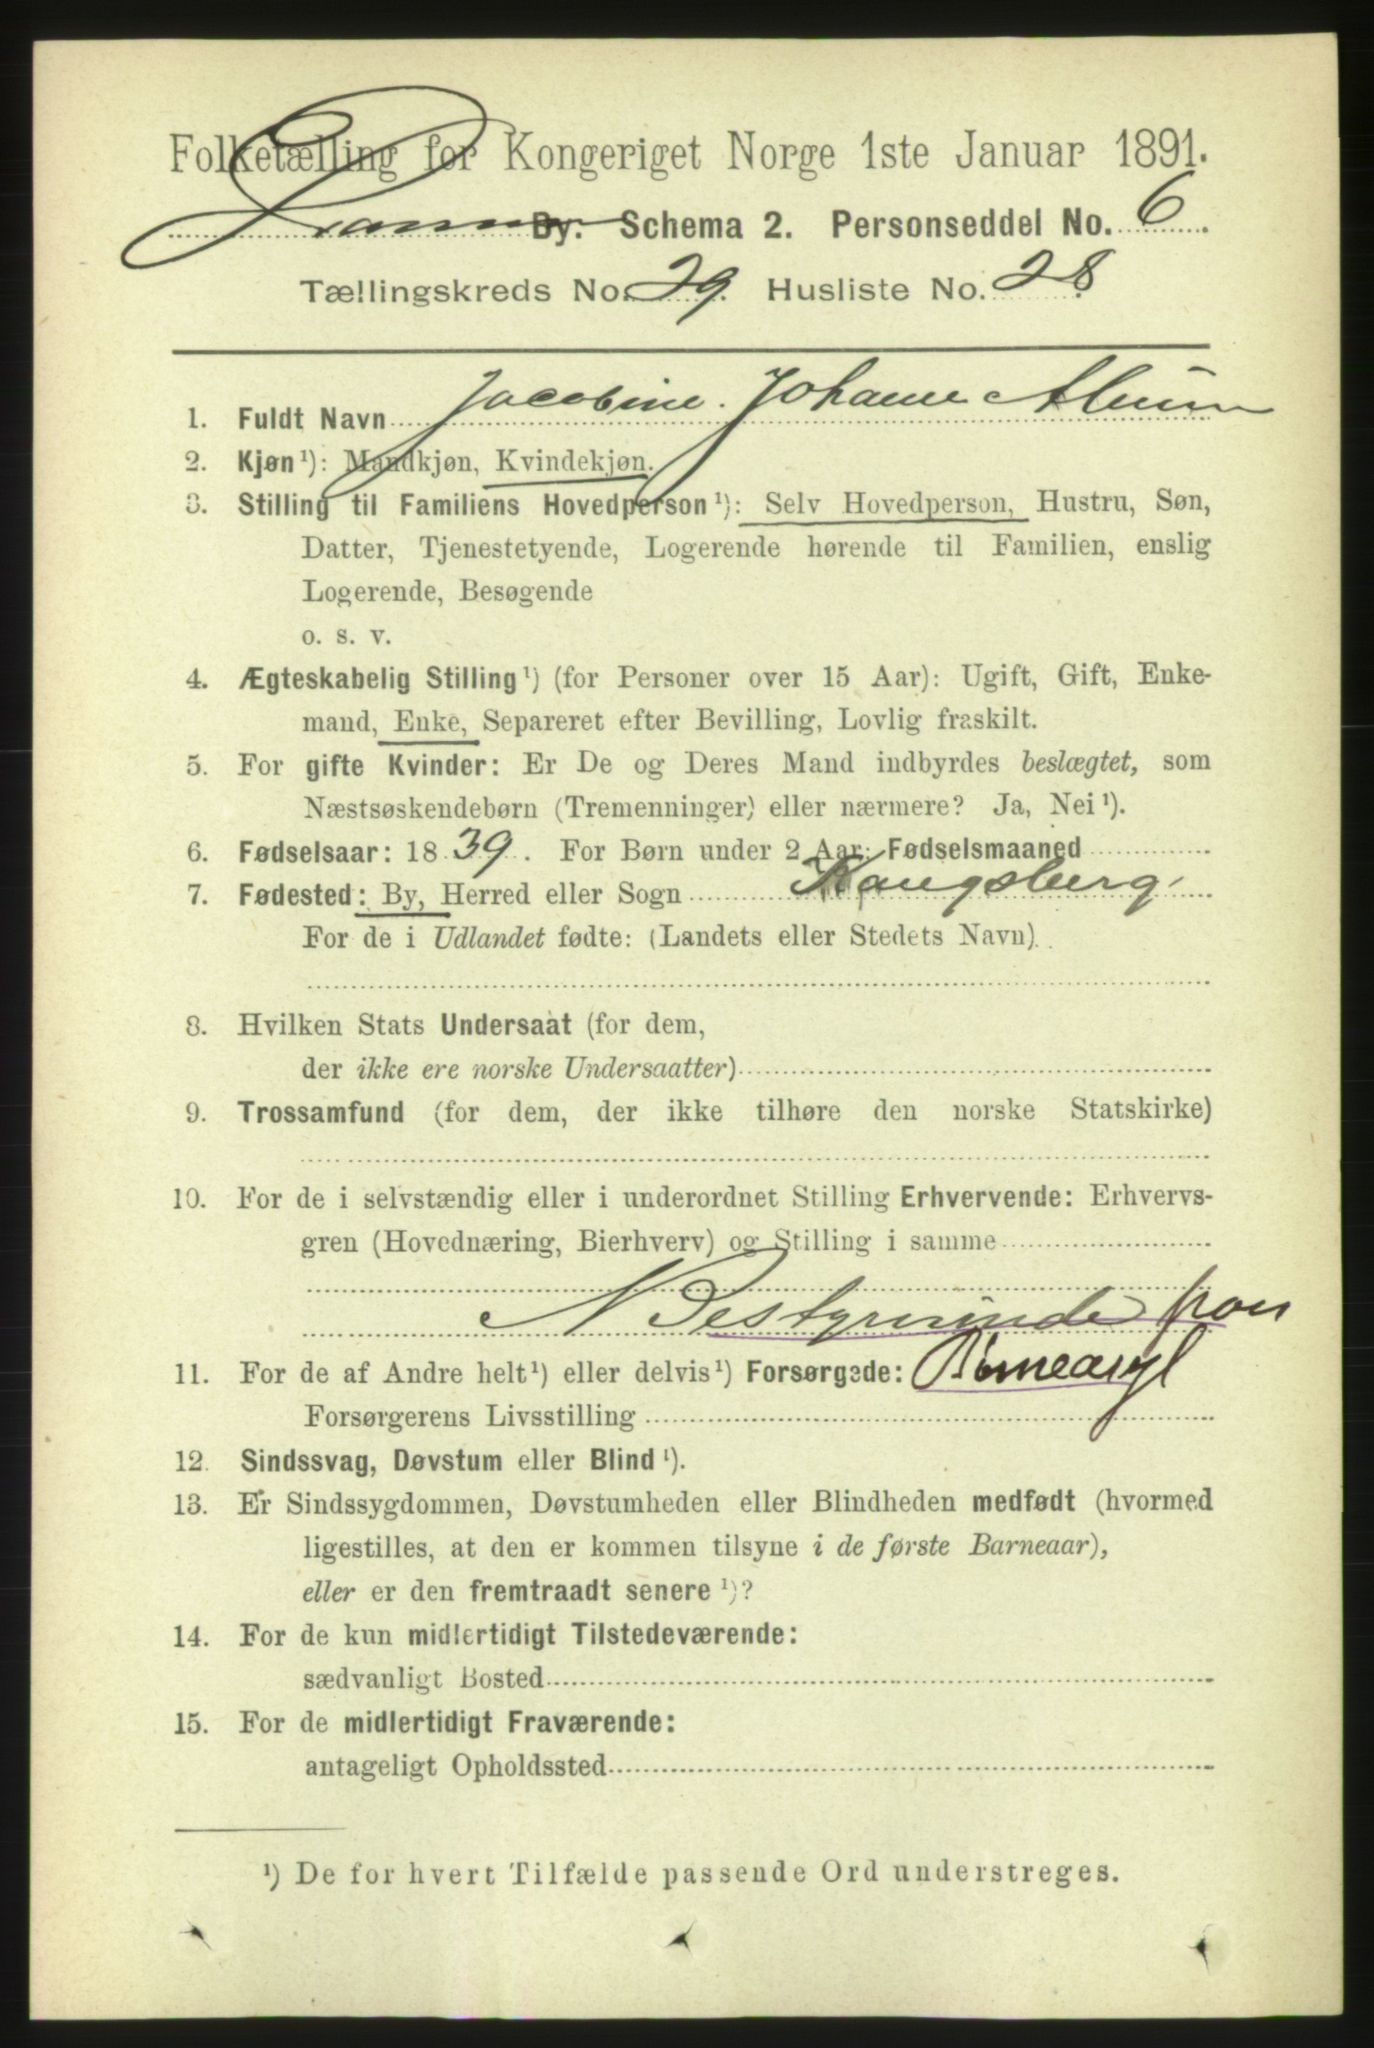 Folketælling for Kongeriget Norge 1ste Januar 1891.
By. Schema 2. Personseddel No. 6
Tællingskreds No. 29. Husliste No. 28
1. Fuldt Navn Jacobine Johanne
2. Kjøn¹): Mandkjøn, Kvindekjøn.
3. Stilling til Familiens Hovedperson¹): Selv Hovedperson, Hustru, Søn,
Datter, Tjenestetyende, Logerende hørende til Familien, enslig
Logerende, Besøgende
o. s. v.
4. Ægteskabelig Stilling¹) (for Personer over 15 Aar): Ugift, Gift, Enke-
mand, Enke, Separeret efter Bevilling, Lovlig fraskilt.
5. For gifte Kvinder: Er De og Deres Mand indbyrdes beslægtet, som
Næstsøskendebørn (Tremenninger) eller nærmere? Ja, Nei¹).
6. Fødselsaar: 1839. For Børn under 2 Aar: Fødselsmaaned
7. Fødested: By, Herred eller Sogn Kongsberg
For de i Udlandet fødte: (Landets eller Stedets Navn)
8. Hvilken Stats Undersaat (for dem,
der ikke ere norske Undersaatter)
9. Trossamfund (for dem, der ikke tilhøre den norske Statskirke)
10. For de i selvstændig eller i underordnet Stilling Erhvervende: Erhvervs-
gren (Hovednæring, Bierhverv) og Stilling i samme
Bestyrerinde paa
11. For de af Andre helt¹) eller delvis¹) Forsørgede: Børneasyl
Forsørgerens Livsstilling
12. Sindssvag, Døvstum eller Blind¹).
13. Er Sindssygdommen, Døvstumheden eller Blindheden medfødt (hvormed
ligestilles, at den er kommen tilsyne i de første Barneaar),
eller er den fremtraadt senere¹)?
14. For de kun midlertidigt Tilstedeværende:
sædvanligt Bosted
15. For de midlertidigt Fraværende:
antageligt Opholdssted
¹) De for hvert Tilfælde passende Ord understreges.